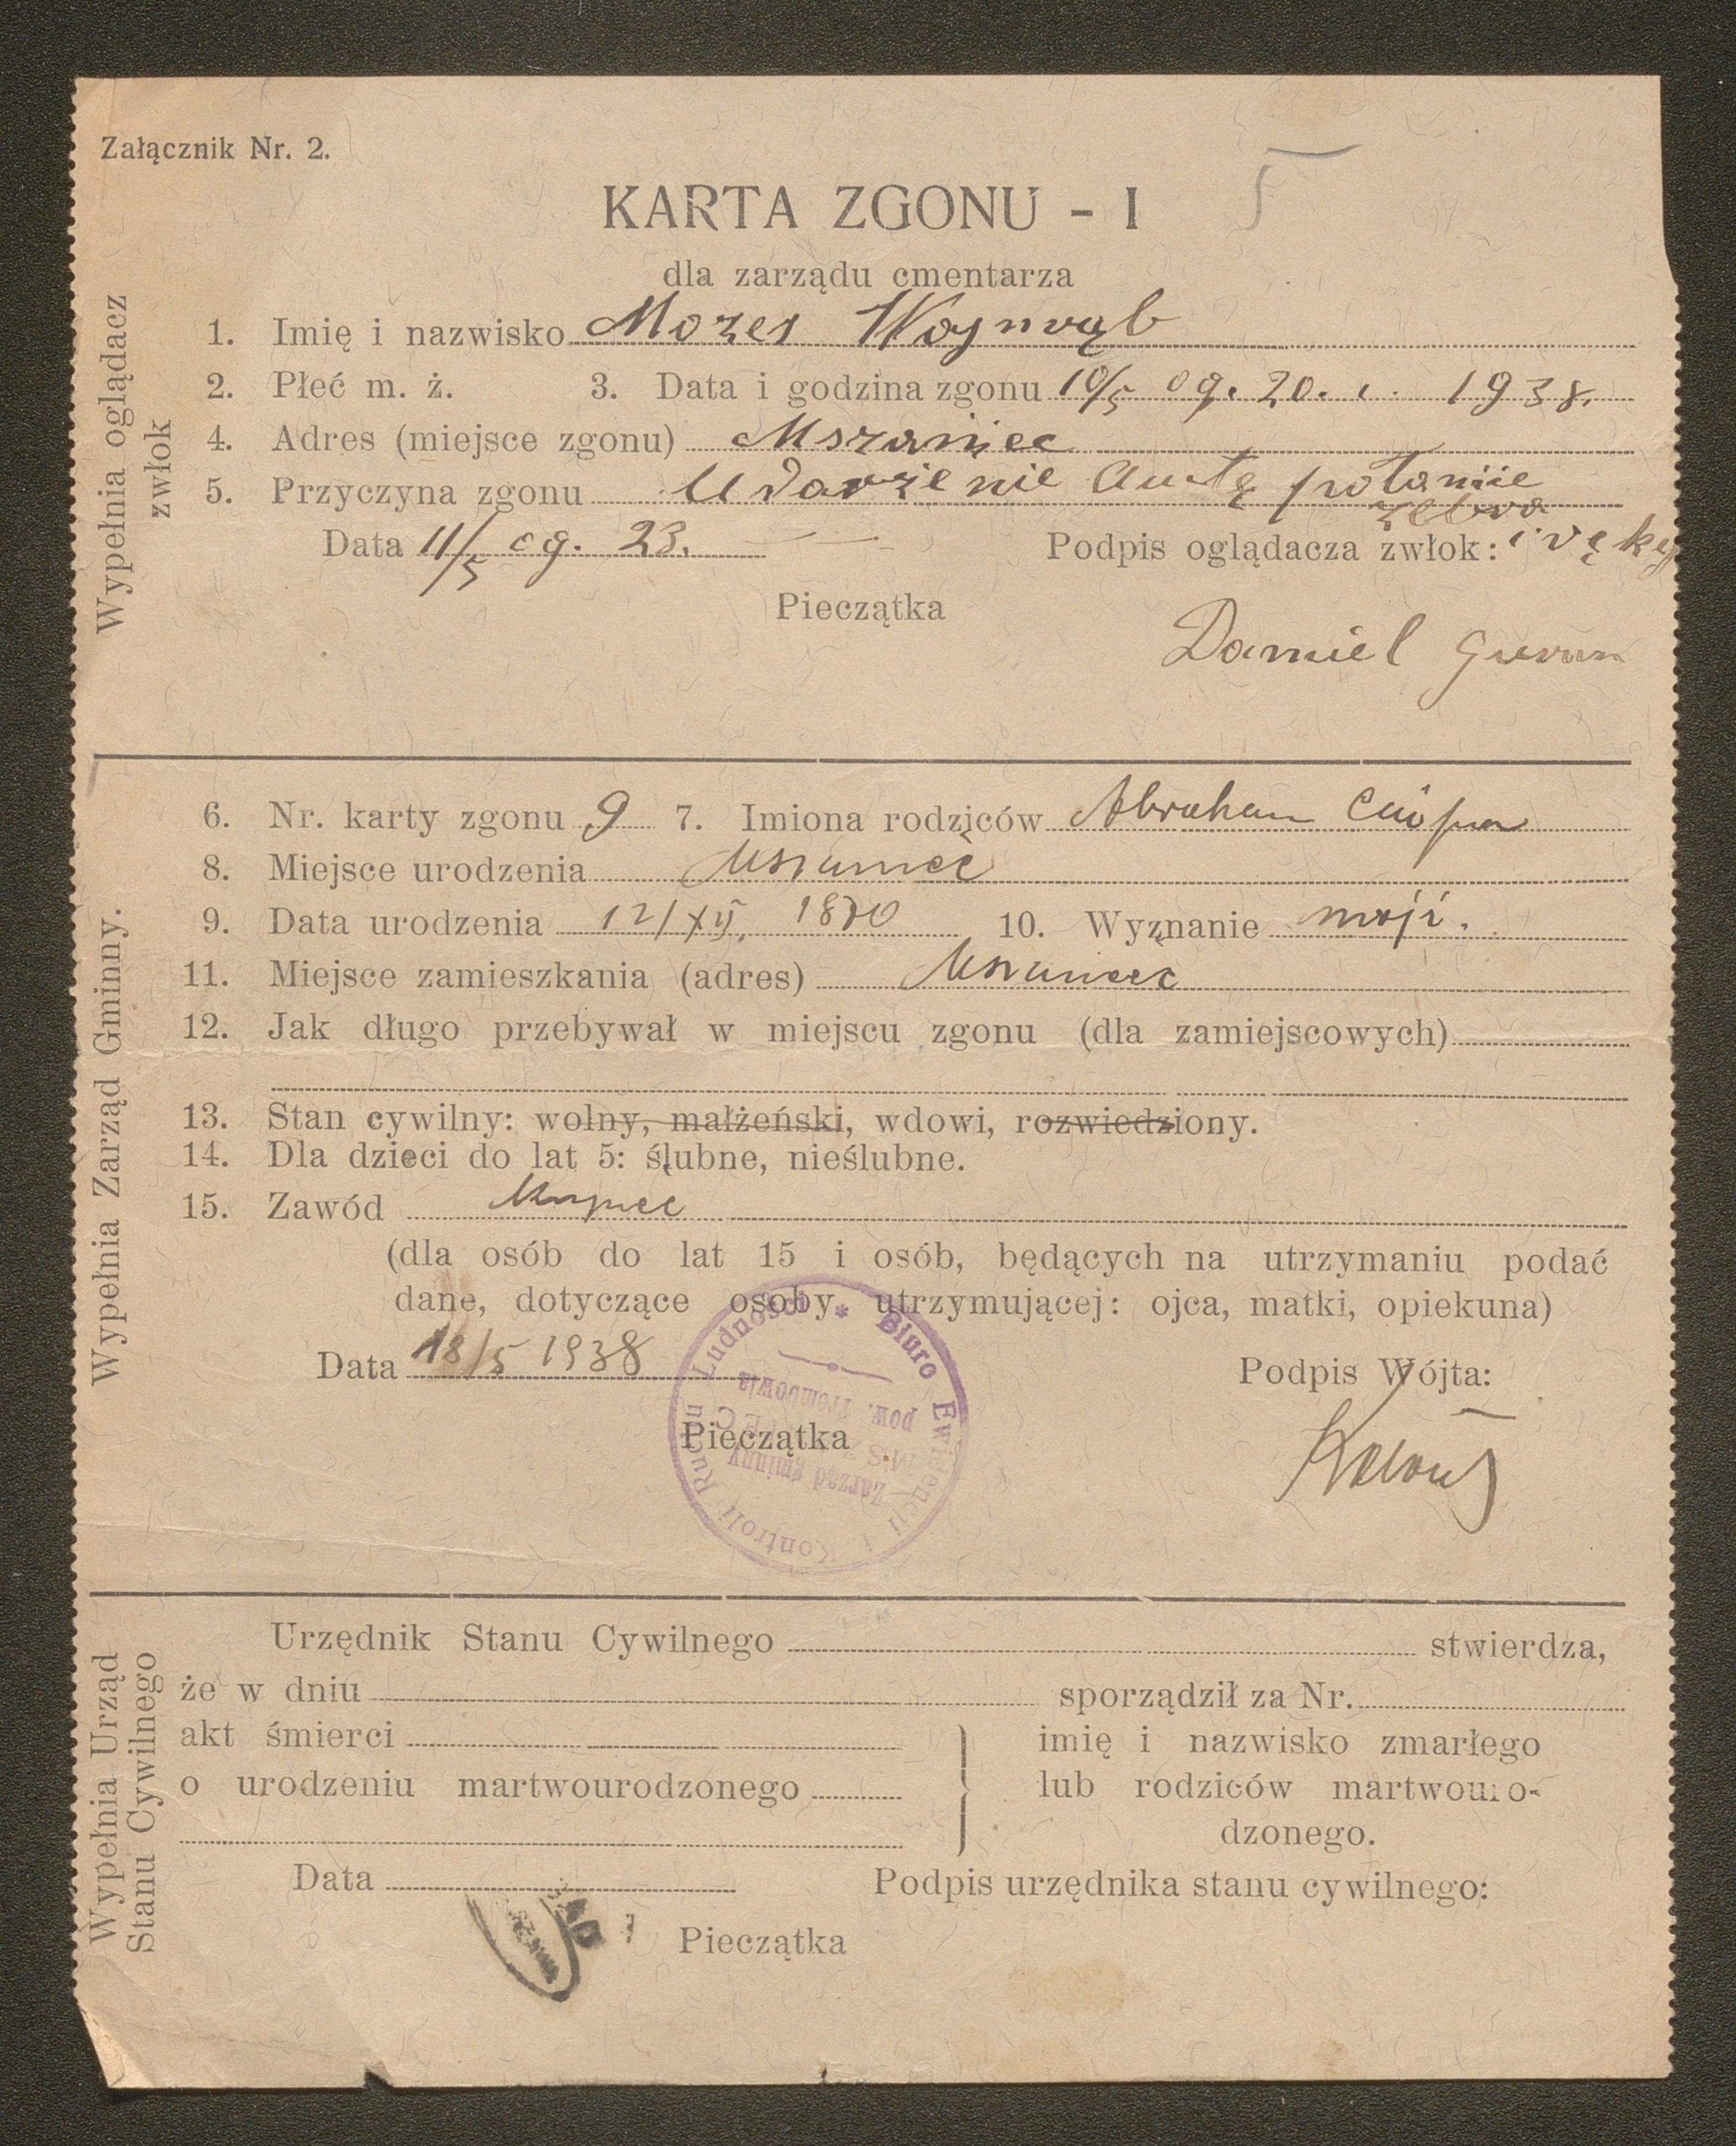 Załącznik Nr. 2.
KARTA ZGONU - I
dla zarządu cmentarza
Wypełnia oglądacz zwłok
1. Imię i nazwisko Mozes
2. Płeć m. ż. 3. Data i godzina zgonu 10/5 og. 20. 1938.
4. Adres (miejsce zgonu) Mszaniec
5. Przyczyna zgonu Udarzenie Autę połamie
żebra
Data 11/5 og. 23. Podpis oglądacza zwłok: i ręky
Pieczątka
Daniel
Wypełnia Zarząd Gminny.
6. Nr. karty zgonu 9 7. Imiona rodziców Abraham
8. Miejsce urodzenia Mszaniec
9. Data urodzenia 12/XII. 1870 10. Wyznanie mojż.
11. Miejsce zamieszkania (adres) Mszaniec
12. Jak długo przebywał w miejscu zgonu (dla zamiejscowych)
13. Stan cywilny: wolny, małżeński, wdowi, rozwiedziony.
14. Dla dzieci do lat 5: ślubne, nieślubne.
15. Zawód kupiec
(dla osób do lat 15 i osób, będących na utrzymaniu podać
dane, dotyczące osoby utrzymującej: ojca, matki, opiekuna)
Data 18/5 1938 Podpis Wójta:
Pieczątka
Biuro Ewidencji i Kontroli Ruchu Ludności
Zarząd gminy
pow. Trembowla
Wypełnia Urząd
Stanu Cywilnego
Urzędnik Stanu Cywilnego stwierdza,
że w dniu sporządził za Nr.
akt śmierci imię i nazwisko zmarłego
o urodzeniu martwourodzonego lub rodziców martwouro-
dzonego.
Data Podpis urzędnika stanu cywilnego:
Pieczątka